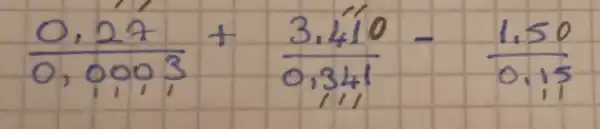 0,27 / 0,0003 + 3,410 / 0,341 - 1,50 / 0,15